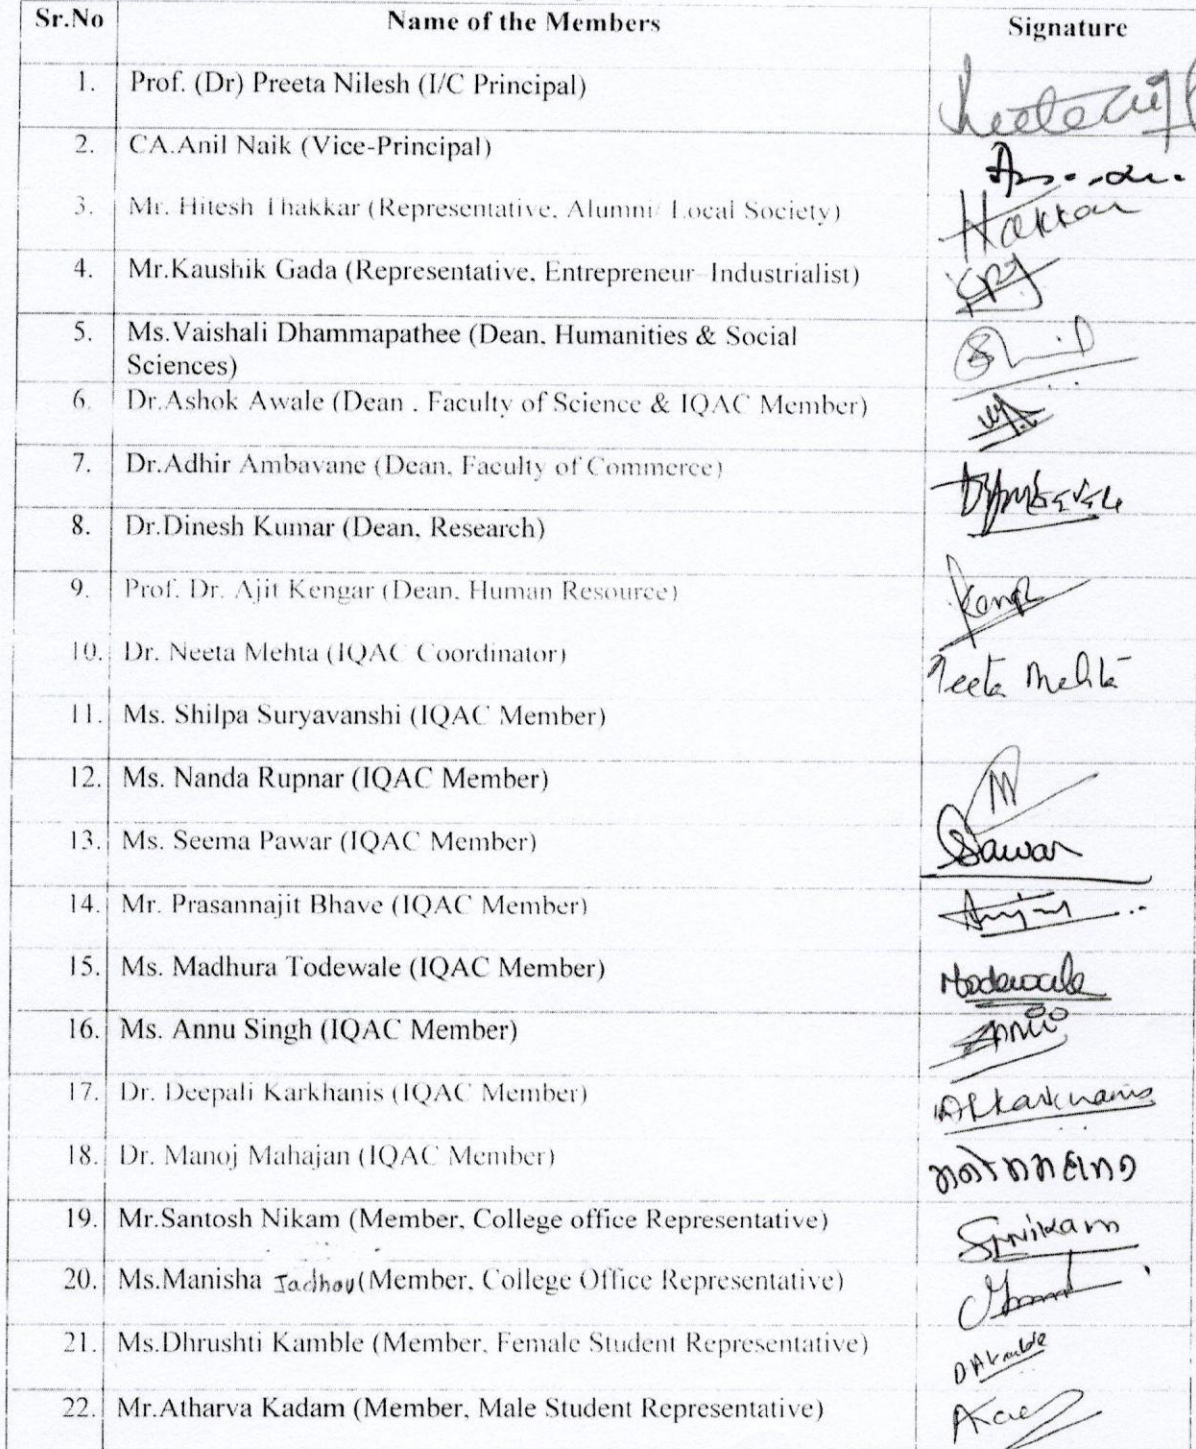 Sr.No Name of the Members Signature
1. Prof. (Dr) Preeta Nilesh (I/C Principal)
2. CA.Anil Naik (Vice-Principal)
3. Mr. Hitesh Thakkar (Representative, Alumni/ Local Society) Hakkar
4. Mr.Kaushik Gada (Representative, Entrepreneur Industrialist)
5. Ms.Vaishali Dhammapathee (Dean, Humanities & Social
Sciences)
6. Dr.Ashok Awale (Dean , Faculty of Science & IQAC Member)
7. Dr.Adhir Ambavane (Dean, Faculty of Commerce)
8. Dr.Dinesh Kumar (Dean, Research)
9. Prof. Dr. Ajit Kengar (Dean, Human Resource)
10. Dr. Neeta Mehta (IQAC Coordinator) Neeta Mehta
11. Ms. Shilpa Suryavanshi (IQAC Member)
12. Ms. Nanda Rupnar (IQAC Member)
13. Ms. Seema Pawar (IQAC Member)
14. Mr. Prasannajit Bhave (IQAC Member)
15. Ms. Madhura Todewale (IQAC Member)
16. Ms. Annu Singh (IQAC Member)
17. Dr. Deepali Karkhanis (IQAC Member)
18. Dr. Manoj Mahajan (IQAC Member)
19. Mr.Santosh Nikam (Member, College office Representative)
20. Ms.Manisha Jadhav (Member, College Office Representative)
21. Ms.Dhrushti Kamble (Member, Female Student Representative)
22. Mr.Atharva Kadam (Member, Male Student Representative)